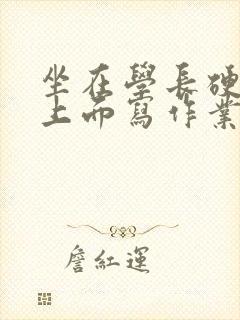 坐在學長硬
上面寫作業
詹紅運